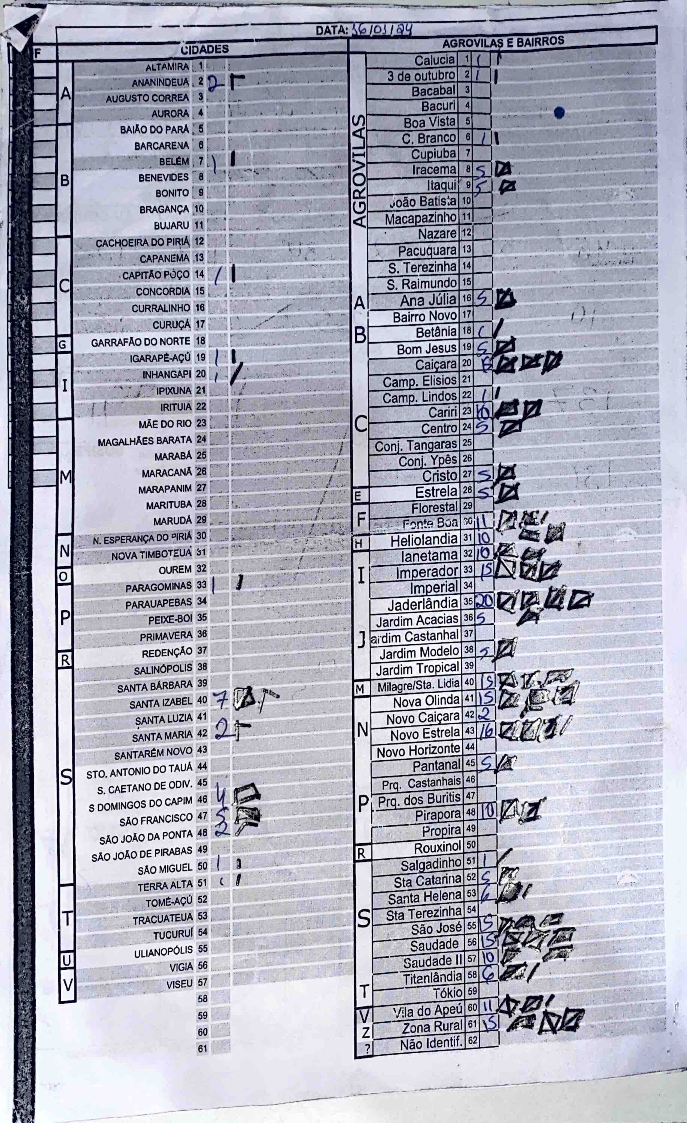 DATA: 16/01/24
F CIDADES
ALTAMIRA 1
A ANANINDEUA 2 2
AUGUSTO CORREA 3
AURORA 4
BAIÃO DO PARÁ 5
BARCARENA 6
BELÉM 7 1
B BENEVIDES 8
BONITO 9
BRAGANÇA 10
BUJARU 11
CACHOEIRA DO PIRIÁ 12
CAPANEMA 13
C CAPITÃO POÇO 14 1
CONCORDIA 15
CURRALINHO 16
CURUÇÁ 17
G GARRAFÃO DO NORTE 18
IGARAPÉ-AÇÚ 19 1
I INHANGAPI 20 1
IPIXUNA 21
IRITUIA 22
MÃE DO RIO 23
MAGALHÃES BARATA 24
MARABÁ 25
M MARACANÃ 26
MARAPANIM 27
MARITUBA 28
MARUDÁ 29
N N. ESPERANÇA DO PIRIÁ 30
NOVA TIMBOTEUA 31
O OUREM 32
PARAGOMINAS 33 1
P PARAUAPEBAS 34
PEIXE-BOI 35
PRIMAVERA 36
R REDENÇÃO 37
SALINÓPOLIS 38
SANTA BÁRBARA 39
SANTA IZABEL 40 7
SANTA LUZIA 41
SANTA MARIA 42 2
SANTARÉM NOVO 43
S STO. ANTONIO DO TAUÁ 44
S. CAETANO DE ODIV. 45
S DOMINGOS DO CAPIM 46 4
SÃO FRANCISCO 47 5
SÃO JOÃO DA PONTA 48 2
SÃO JOÃO DE PIRABAS 49
SÃO MIGUEL 50 1
TERRA ALTA 51 1
T TOMÉ-AÇÚ 52
TRACUATEUA 53
TUCURUÍ 54
U ULIANÓPOLIS 55
V VIGIA 56
VISEU 57
58
59
60
61
AGROVILAS E BAIRROS
AGROVILAS
Calucia 1 1
3 de outubro 2 1
Bacabal 3
Bacuri 4
Boa Vista 5
C. Branco 6 1
Cupiuba 7
Iracema 8 5
Itaqui 9 5
João Batista 10
Macapazinho 11
Nazare 12
Pacuquara 13
S. Terezinha 14
S. Raimundo 15
A Ana Júlia 16 5
Bairro Novo 17
B Betânia 18 1
Bom Jesus 19 5
Caiçara 20
Camp. Elisios 21
Camp. Lindos 22 1
C Cariri 23 10
Centro 24 5
Conj. Tangaras 25
Conj. Ypês 26
Cristo 27 5
E Estrela 28 5
F Florestal 29
Fonte Boa 30 11
H Heliolandia 31 10
Ianetama 32 10
I Imperador 33 15
Imperial 34
Jaderlândia 35 20
Jardim Acacias 36 5
J Jardim Castanhal 37
Jardim Modelo 38 5
Jardim Tropical 39
M Milagre/Sta. Lidia 40 15
Nova Olinda 41 15
N Novo Caiçara 42 2
Novo Estrela 43 16
Novo Horizonte 44
Pantanal 45 5
Prq. Castanhais 46
P Prq. dos Buritis 47
Pirapora 48 10
Propira 49
R Rouxinol 50
Salgadinho 51 1
Sta Catarina 52 5
Santa Helena 53 6
S Sta Terezinha 54
São José 55 15
Saudade 56 15
Saudade II 57 10
Titenlândia 58 6
T Tókio 59
V Vila do Apeú 60 11
Z Zona Rural 61 15
? Não Identif. 62